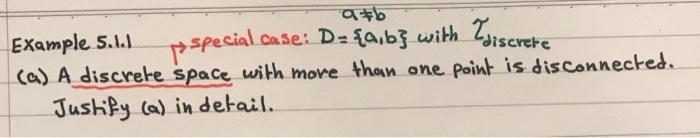 a≠b
Example 5.1.1 → special case: D={a,b} with 𝒯discrete
(a) A discrete space with more than one point is disconnected.
Justify (a) in detail.